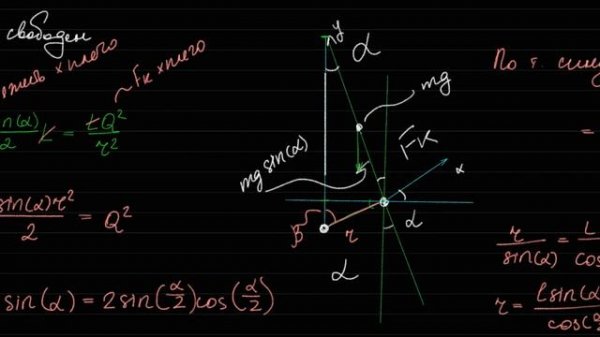 свободен
× плечо
Fк × плечо
sin(α)/2 L = LQ²/r²
sin(α)r²/2 = Q²
sin(α) = 2sin(α/2)cos(α/2)
y
α
mg
Fк
mg sin(α)
x
β
r
α
α
По т. сину
=
r/sin(α) = L/cos
r = lsin(α)/cos(α